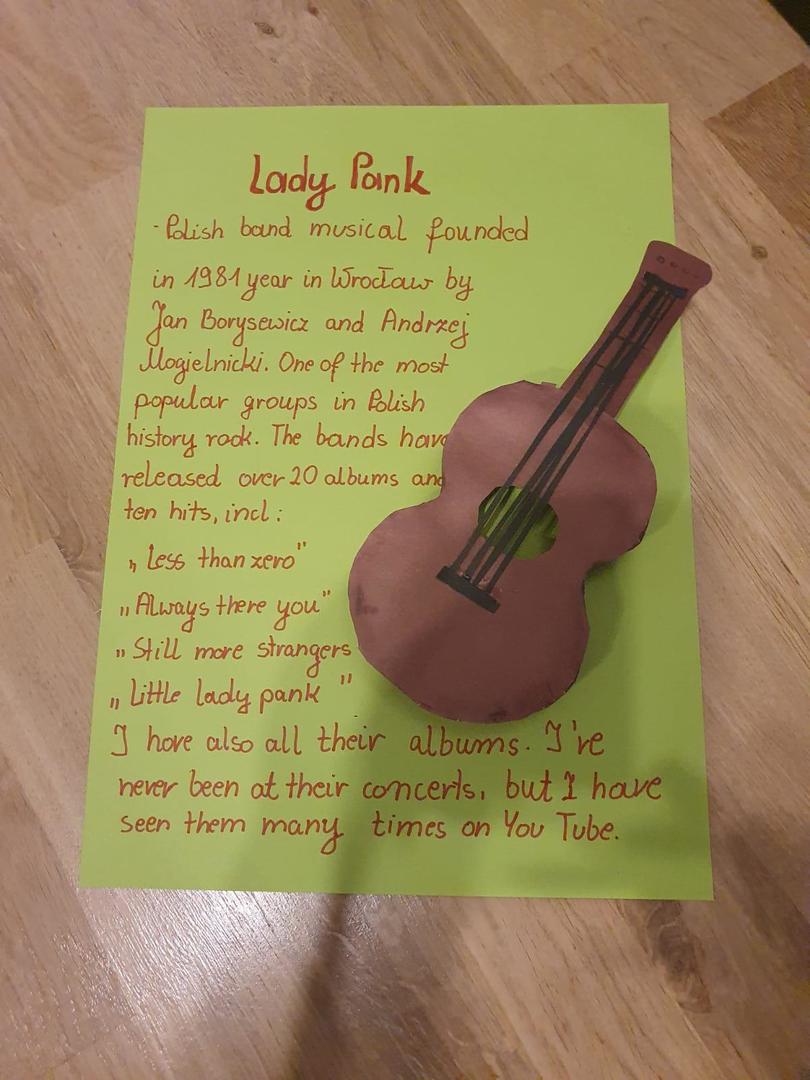 Lady Pank
- Polish band musical founded
in 1981 year in Wrocław by
Jan Borysewicz and Andrzej
Mogielnicki. One of the most
popular groups in Polish
history rock. The bands have
released over 20 albums and
ten hits, incl:
„Less than zero"
„Always there you"
„Still more strangers
„Little lady pank"
I have also all their albums. I've
never been at their concerts, but I have
seen them many times on You Tube.